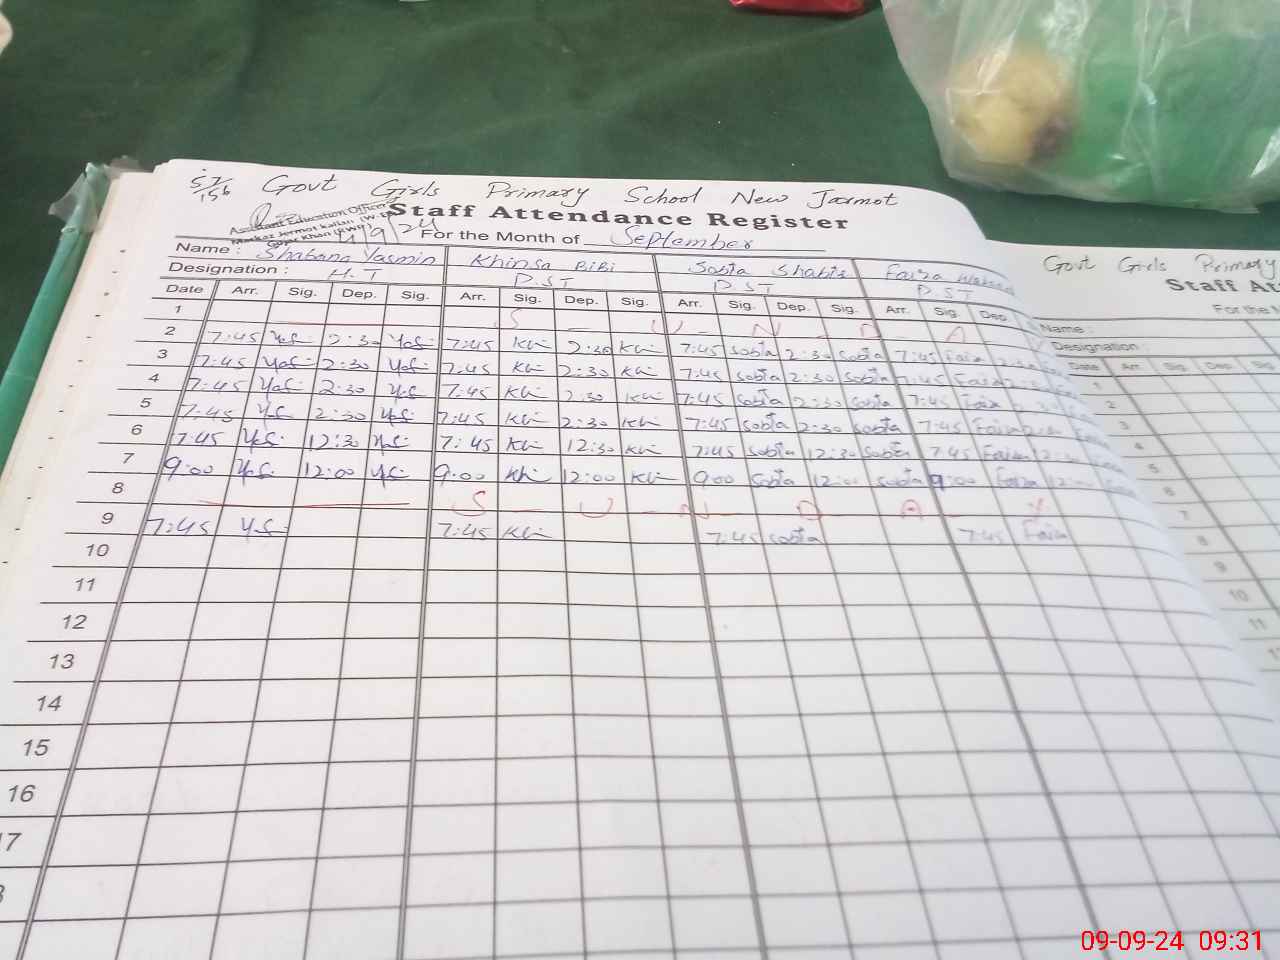 57/156 Govt Girls Primary School New Jarmot
Assistant Education Officer
Markaz Jermot Kallan (W-E)
Gujar Khan (RWP)
4/9/24
Staff Attendance Register
For the Month of September
Name : Shabana Yasmin Khinsa BiBi Sobia Shabir Faiza
Designation : H.T P.ST P.ST P.ST
Date Arr. Sig. Dep. Sig. Arr. Sig. Dep. Sig. Arr. Sig. Dep. Sig. Arr. Sig. Dep
1 S U N D A Y
2 7:45 Y.S 2:30 Y.S 7:45 Kh 2:30 Kh 7:45 Sobia 2:30 Sobia 7:45 Faiza
3 7:45 Y.S 2:30 Y.S 7:45 Kh 2:30 Kh 7:45 Sobia 2:30 Sobia 7:45 Faiza
4 7:45 Y.S 2:30 Y.S 7:45 Kh 2:30 Kh 7:45 Sobia 2:30 Sobia 7:45 Faiza
5 7:45 Y.S 2:30 Y.S 7:45 Kh 2:30 Kh 7:45 Sobia 2:30 Sobia 7:45 Faiza
6 7:45 Y.S 12:30 Y.S 7:45 Kh 12:30 Kh 7:45 Sobia 12:30 Sobia 7:45 Faiza
7 9:00 Y.S 12:00 Y.S 9:00 Kh 12:00 Kh 9:00 Sobia 12:00 Sobia 9:00 Faiza
8 S U N D A Y
9 7:45 Y.S 7:45 Kh 7:45 Sobia 7:45 Faiza
10
11
12
13
14
15
16
17
Govt Girls Primary
Staff At
For the
Name :
Designation :
Date Arr. Sig. Dep. Sig
1
2
3
4
5
6
7
8
9
10
11
09-09-24 09:31